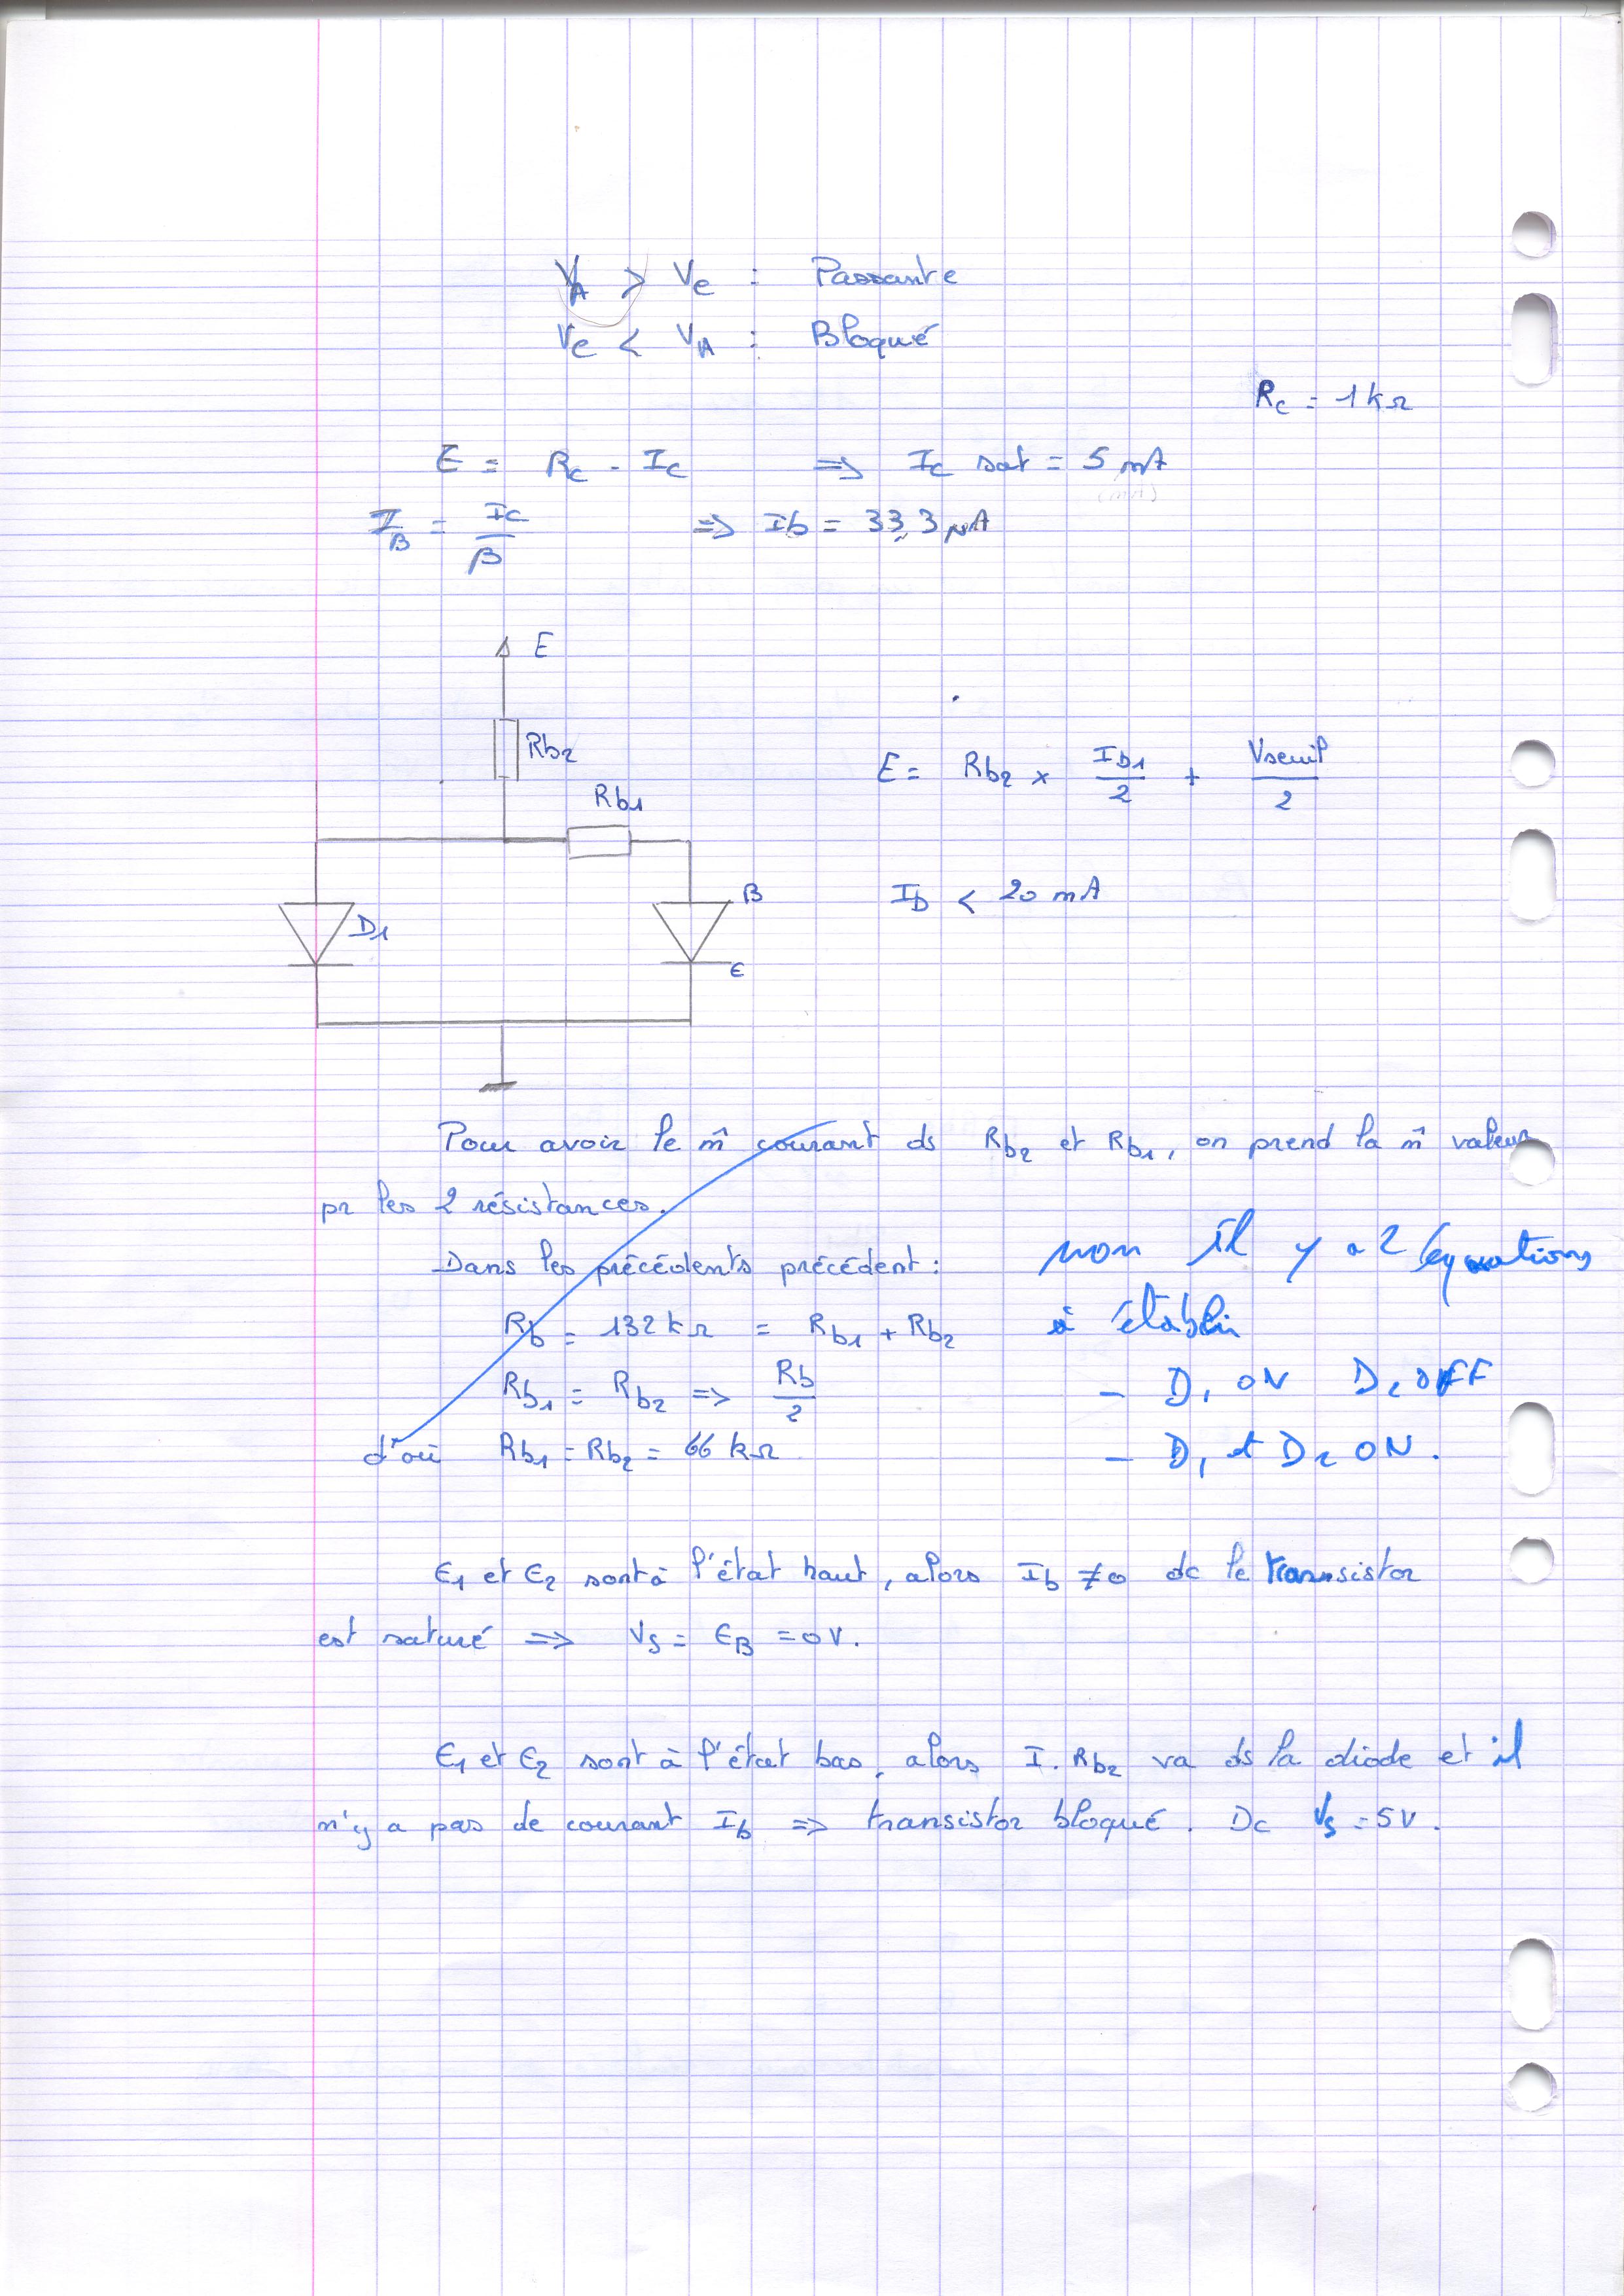 VA > Ve : Passante
Ve < VA : Bloqué
Rc = 1 kΩ
E = Rc - Ic => Ic sat = 5 mA
(mA)
IB = Ic / β => Ib = 33,3 µA
E
Rb2
Rb1
E = Rb2 × ID1 / 2 + Vseuil / 2
D1
B
E
ID < 20 mA
Pour avoir le m̂ courant ds Rb2 et Rb1, on prend la m̂ valeur
pr les 2 résistances.
Dans les précédents précédent :
non il y a 2 équations
à établir
Rb = 132 kΩ = Rb1 + Rb2
Rb1 = Rb2 => Rb / 2
- D1 ON D2 OFF
d'où Rb1 = Rb2 = 66 kΩ
- D1 et D2 ON.
E1 et E2 sont à l'état haut, alors Ib ≠ 0 dc le transistor
est saturé => Vs = EB = 0V.
E1 et E2 sont à l'état bas, alors I. Rb2 va ds la diode et il
n'y a pas de courant Ib => transistor bloqué. Dc Vs = 5V.